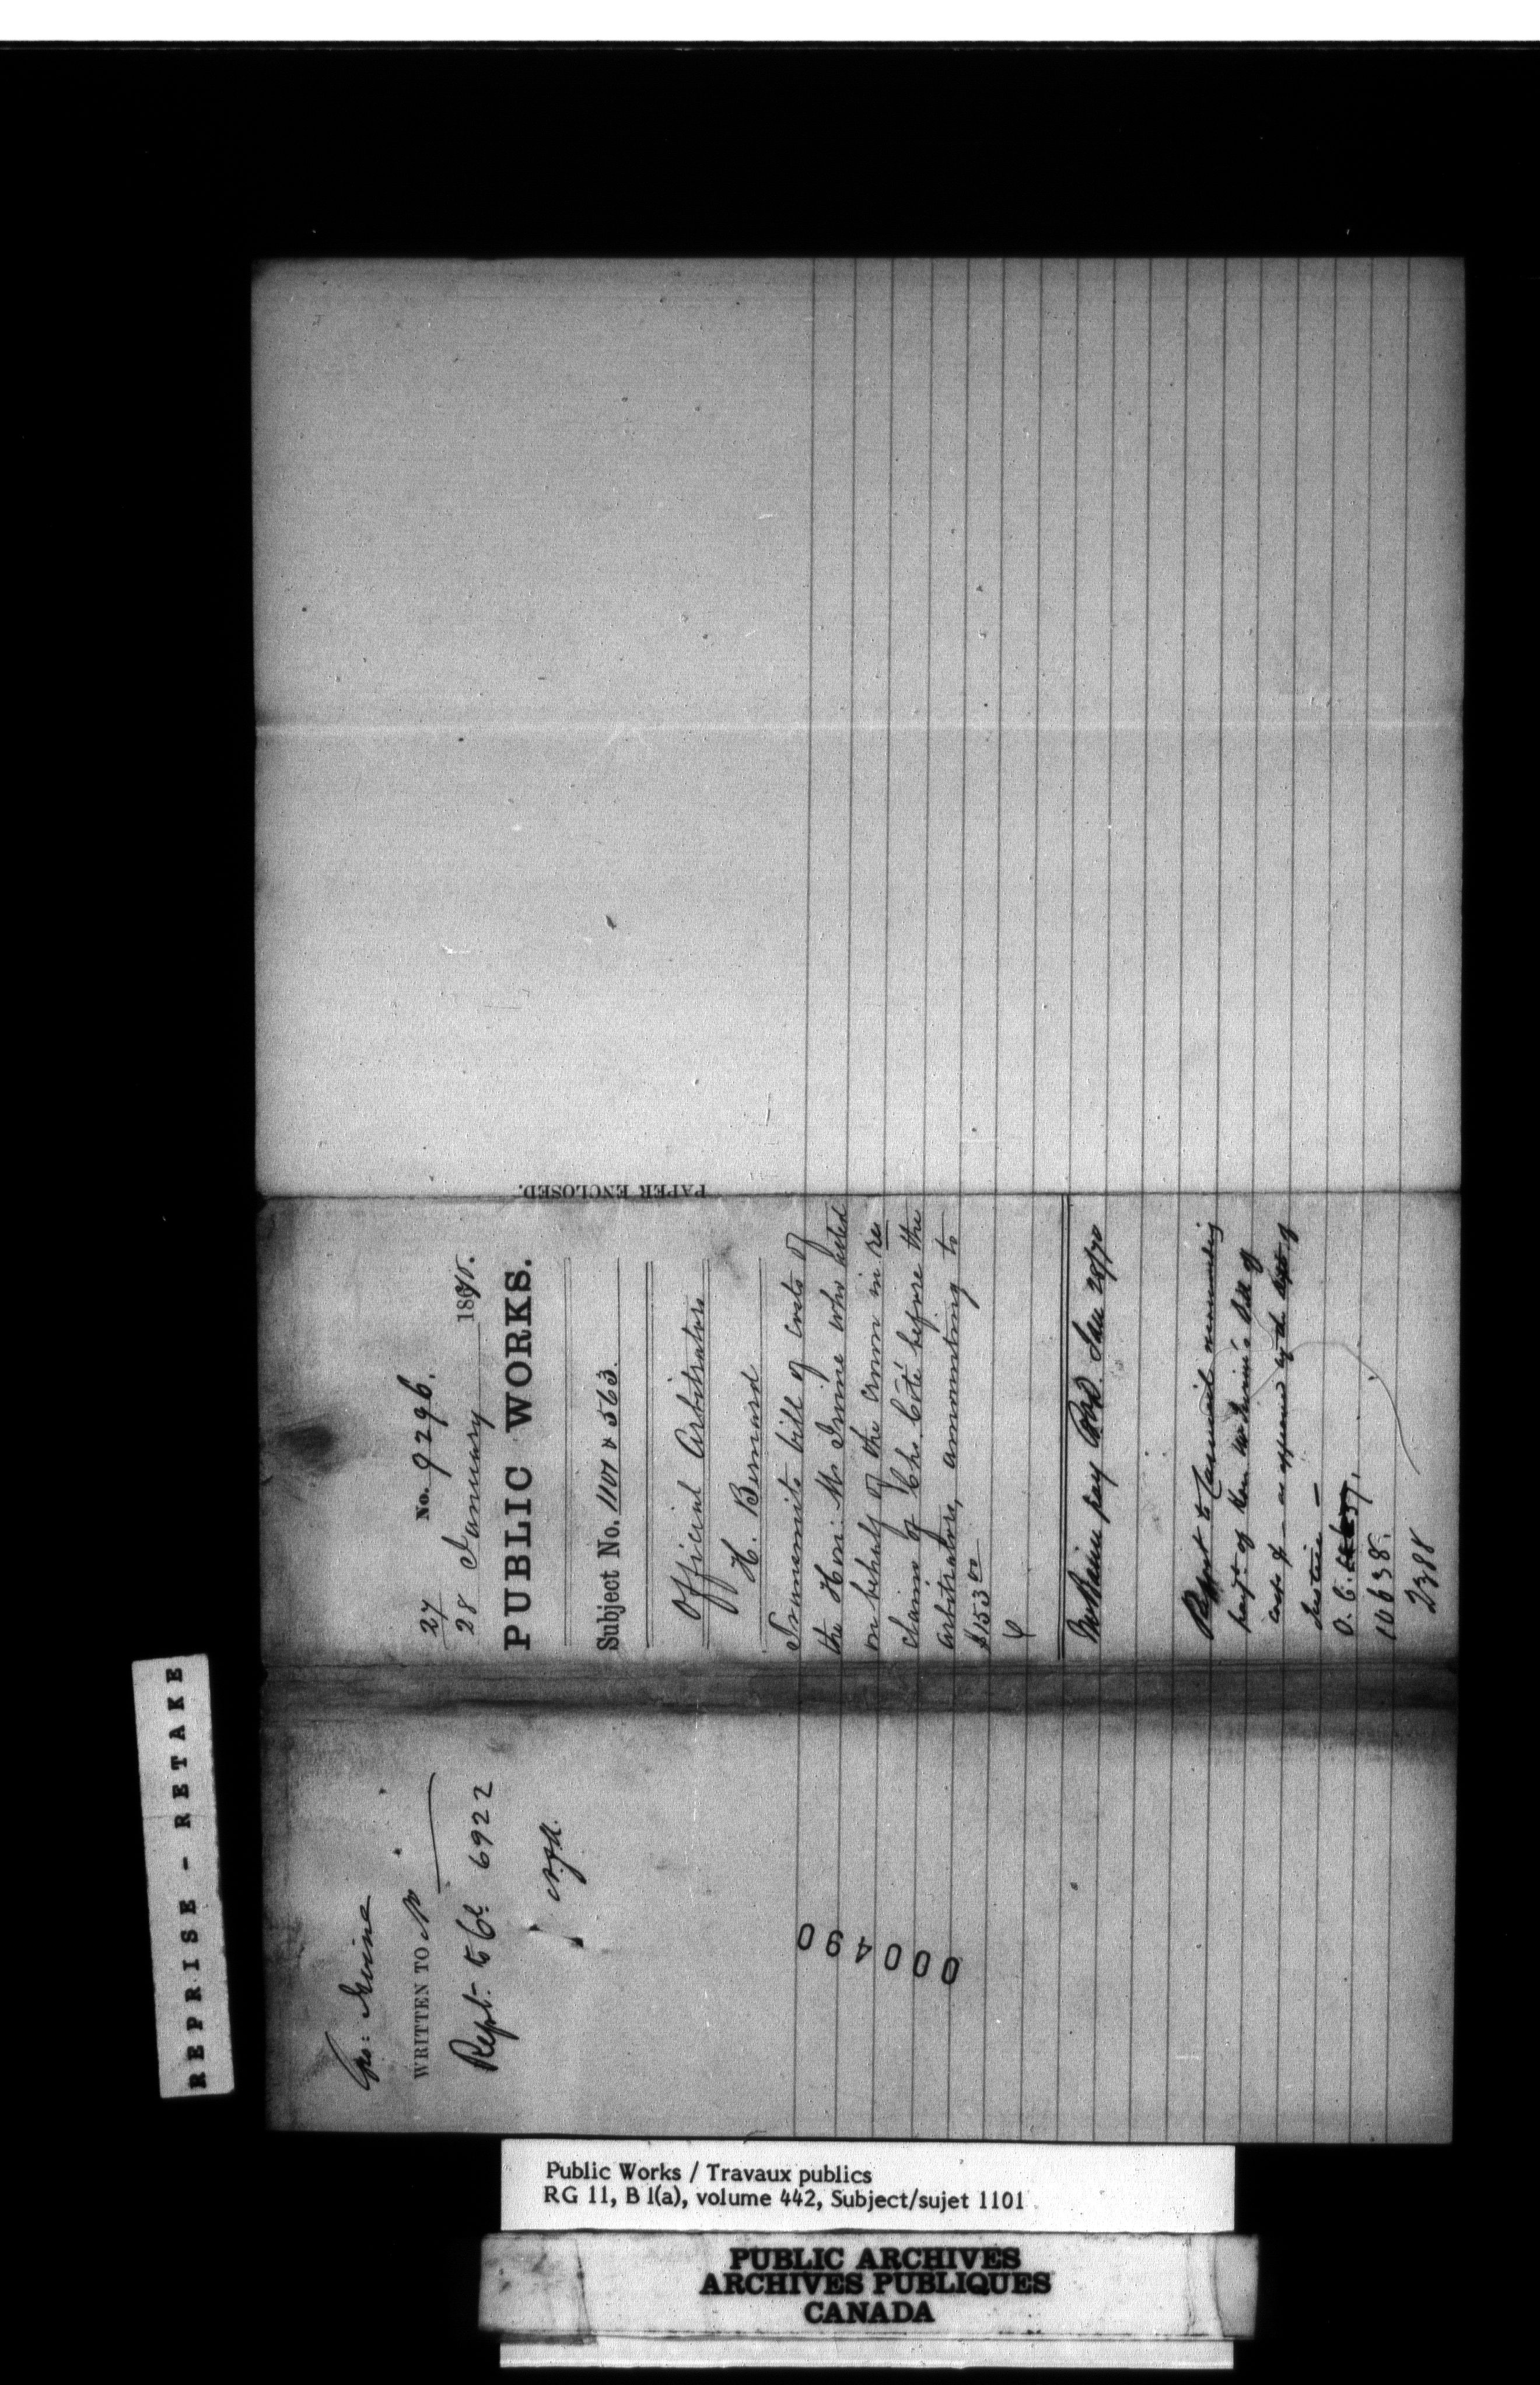 REPRISE - RETAKE
Geo: Irvine
WRITTEN TO
Rept. to Cl. 6922
000490
No. 9296.
27
28 January 1870.
PUBLIC WORKS.
Subject No. 1101 & 563.
Official Arbitrators
H. Bernard
PAPER ENCLOSED.
Transmits bill of costs of
the Hon: Mr Irvine who acted
on behalf of the Crown in re
claim of Chs. Côté before the
Arbitrators, amounting to
$153 00
pay Jan 28/70
Report to Council recommending
payt. of Hon Mr Irvine's bill of
costs as approved by the Dept of
Justice —
O.C.
10638.
2388
Public Works / Travaux publics
RG 11, B 1(a), volume 442, Subject/sujet 1101
PUBLIC ARCHIVES
ARCHIVES PUBLIQUES
CANADA